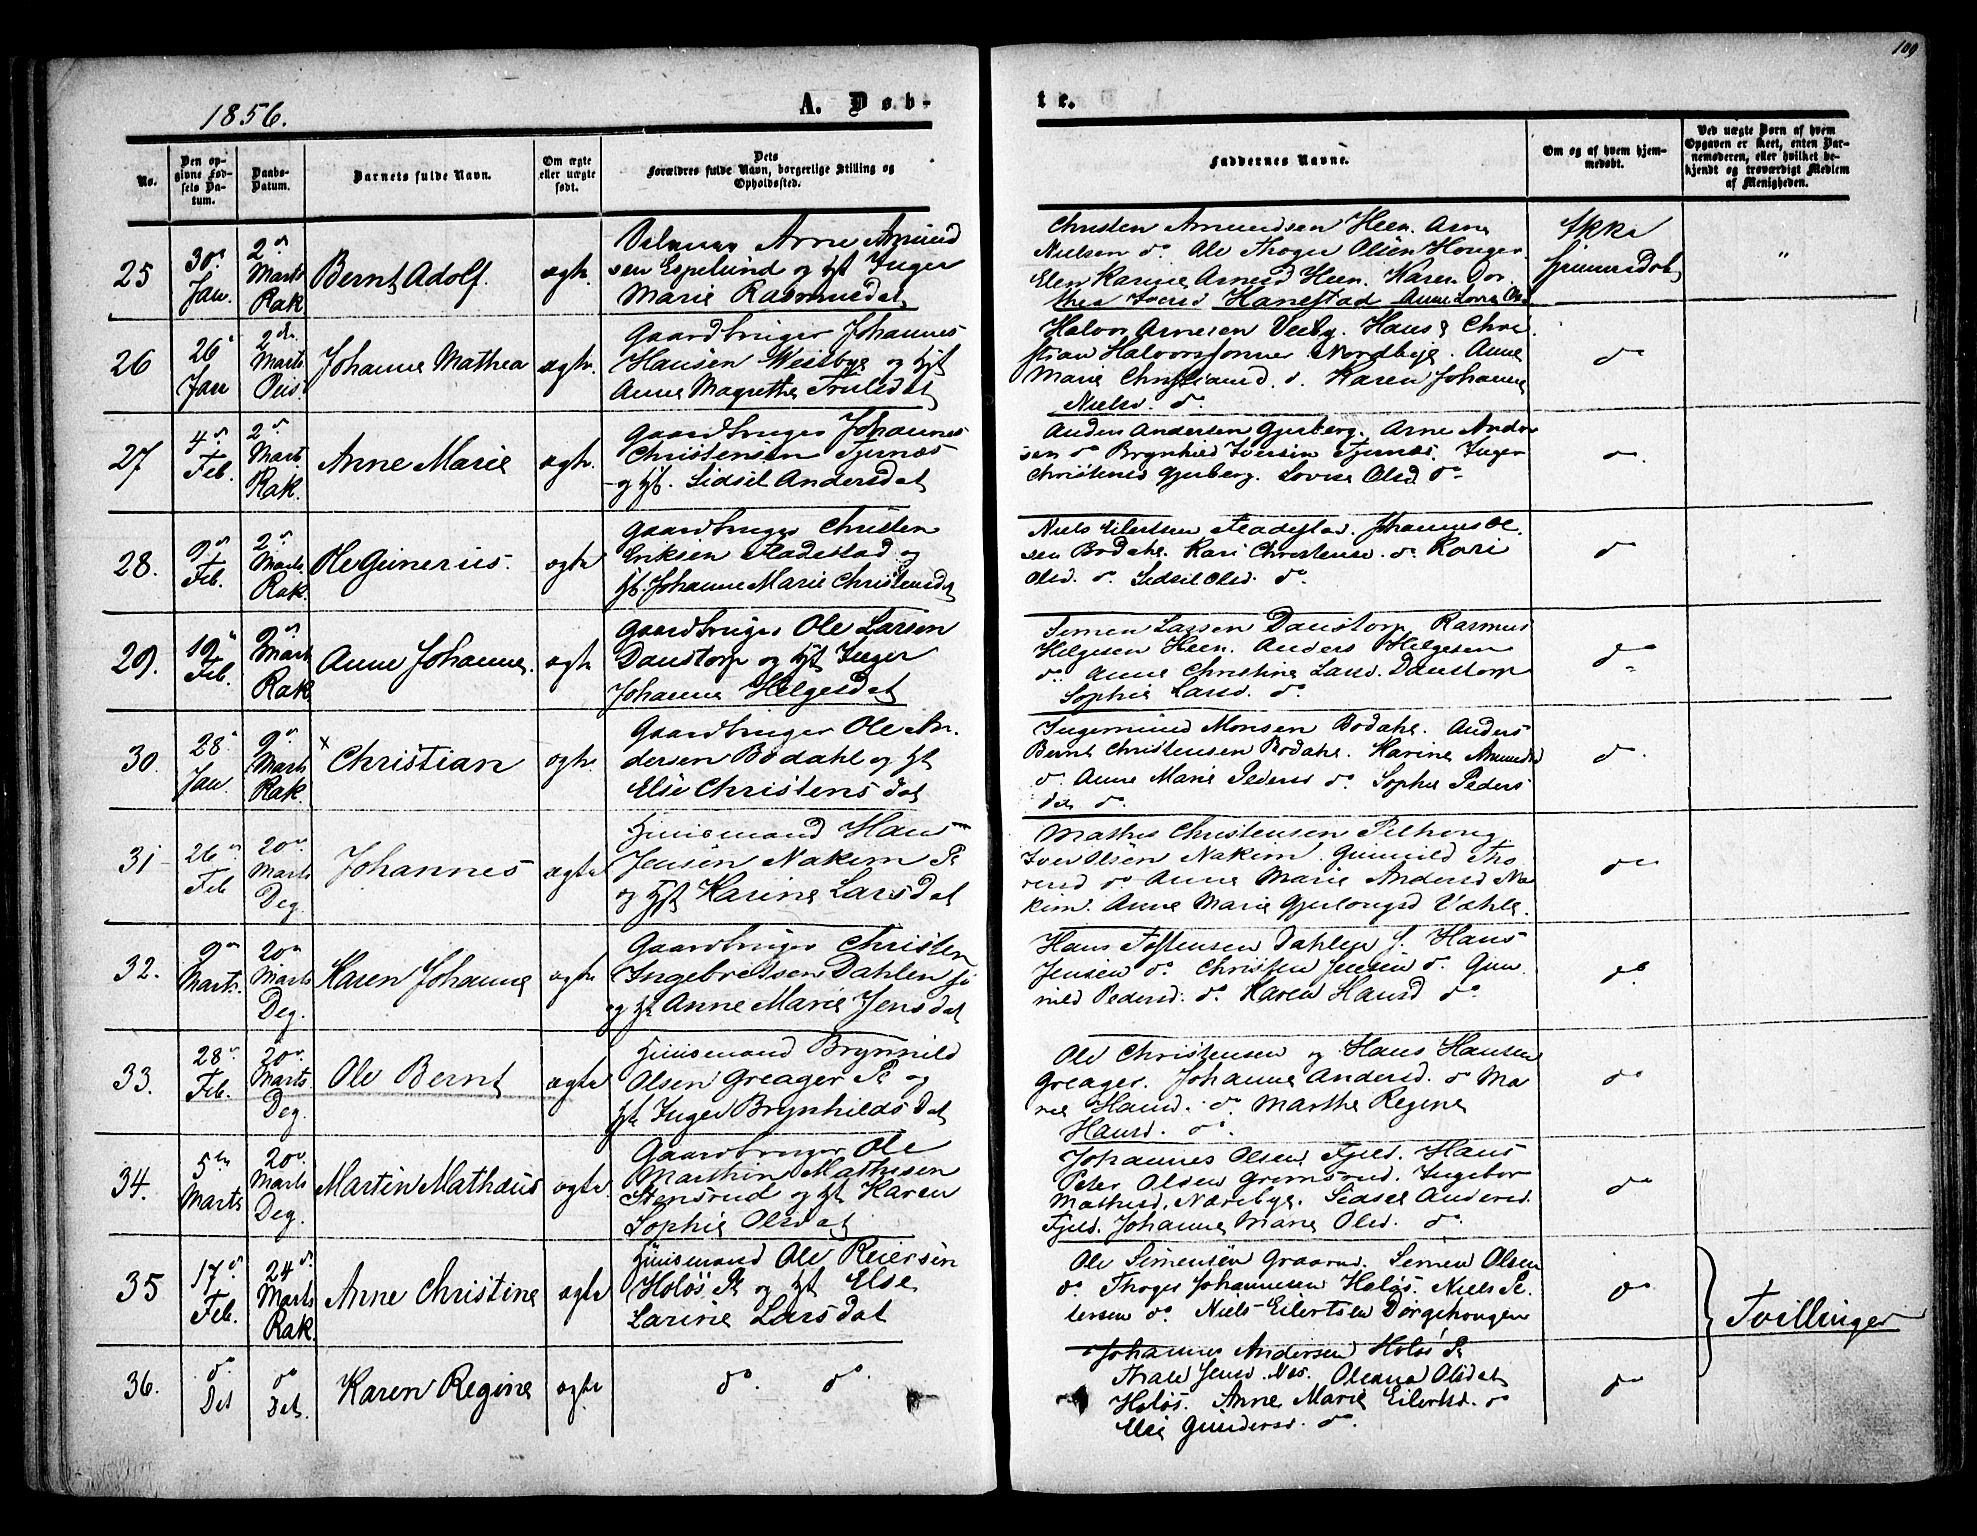 109
1856.
A. Døb-
te.
No.
Den op-
givne Fød-
sels Da-
tum.
Daabs-
Datum.
Barnets fulde Navn.
Om ægte
eller uægte
født.
Dets
Forældres fulde Navn, borgerlige Stilling og
Opholdssted.
Faddernes Navne.
Om og af hvem hjem-
medøbt.
Ved uægte Børn af hvem
Opgaven er skeet, enten Bar-
nemoderen, eller hvilket be-
kjendt og troværdigt Medlem
af Menigheden.
25
30
Jan.
2
Marts
Rak
Bernt Adolf.
ægte.
Arne Amund
sen Espelund og Inger
Marie Rasmusdat
Christen Amundsen Heen. Arne
Nielsen do. Ole Thoger Olsen Honger.
Elen Karine Arnesd Heen. Karen Dor
thea Iversd Hanestad Anne Lovise Olsd
Ikke
hjemmedøbt
"
26
26
Jan
2
Marts
Johanne Mathea
ægte.
Gaardbruger Johannes
Hansen Westbye og
Anne Magrethe Trulsdat
Halvor Arnesen Veeby. Hans & Chri
stian Halvorssønner Nordbye. Anne
Marie Christiansd. do. Karen Johanne
Nielsd. do.
do
27
4
Feb.
2
Marts
Rak.
Anne Marie
ægte.
Gaardbruger Johannes
Christensen Tjernæs
og Sidsel Andersdat
Anders Andersen Gjerberg. Arne Ander
sen do Brynhild Iversen Tjernæs. Inger
Christensd Gjerberg. Lovise Olsd do
do.
28.
9
Feb.
2
Marts.
Rak.
Ole Gunerius.
ægte
Gaardbruger Christen
Eriksen Stadestad og
Johanne Marie Christensdat
Niels Eilertsen Johannes Ol
sen Bodahl. Kari Christensd. do. Kari
Olsd. do. Sidsel Olsd. do.
do
29.
19
Feb.
9
Marts
Rak
Anne Johanne.
ægte
Gaardbruger Ole Larsen
Danstorp og Inger
Johanne Helgesdat
Simen Larsen Danstorp Rasmus
Helgesen Heen. Anders Helgesen
do. Anne Christine Larsd. Danstorp
Sophie Larsd. do.
do
30.
28
Jan.
9
Marts
Rak.
x
Christian
ægte.
Gaardbruger Ole An.
dersen Bodahl og
Else Christensdat
Ingemund Monsen Bodahl. Anders
Bernt Christensen Bodahl. Karine Amundsd
do. Anne Marie Pedersd do. Sophie Peders
dat do.
do.
31
26
Feb
20
Marts
Deg.
Johannes
ægte
Huusmand Hans
Jensen Nakim
og Karine Larsdat
Mathis Christensen Pilhong
Iver Olsen Nakim. Gunnild Tho
resd do. Anne Marie Andersd Na
kim. Anne Marie Gjerlougsd Vahle.
do
32.
9
Marts.
20
Marts
Deg.
Karen Johanne
ægte.
Gaardbruger Christen
Ingebretsen Dahlen
og Anne Marie Jensdat
Hans Tostensen Dahlen Hans
Jensen do. Christen Jensen do. Gun
nild Pedersd. do. Karen Hansd do.
do.
33.
28
Feb.
20
Marts.
Deg.
Ole Bernt
ægte
Huusmand Brynnild
Olsen Greager og
Inger Brynhildsdat
Ole Christensen og Hans Hansen
Greager. Johanne Andersd. do Ma
rie Hansd. do. Marthe Regine
Hansd. do.
do
34.
5
Marts
20
Marts
Deg.
Martin Mathæus
ægte.
Gaardbruger Ole
Marthin Mathisen
Stensrud og Karen
Sophie Olsdat
Johannes Olsen Fjeld. Hans
Peter Olsen Grimsrud. Ingebor
Mathisd. Nærebye. Sidsel Andersd.
Fjeld. Johanne Marie Olsd. do.
do
35
17
Feb.
24
Marts
Rak.
Anne Christine
ægte
Huusmand Ole Reiersen
Holøs og Else
Larine Larsdat
Ole Simensen Graarud. Simen Olsen
do. Thoger Johannesen Holøs. Niels Pe.
tersen do. Niels Eilertsen Dørgehougen
do.
Tvillinger
36.
do
Det
do
Det.
Karen Regine
ægte
do. do.
Johannes Andersen Holøs
Jensd. Næs. Oleana Olsdat
Holøs. Anne Marie Eilertsd. do
Else Gundersd. do.
do